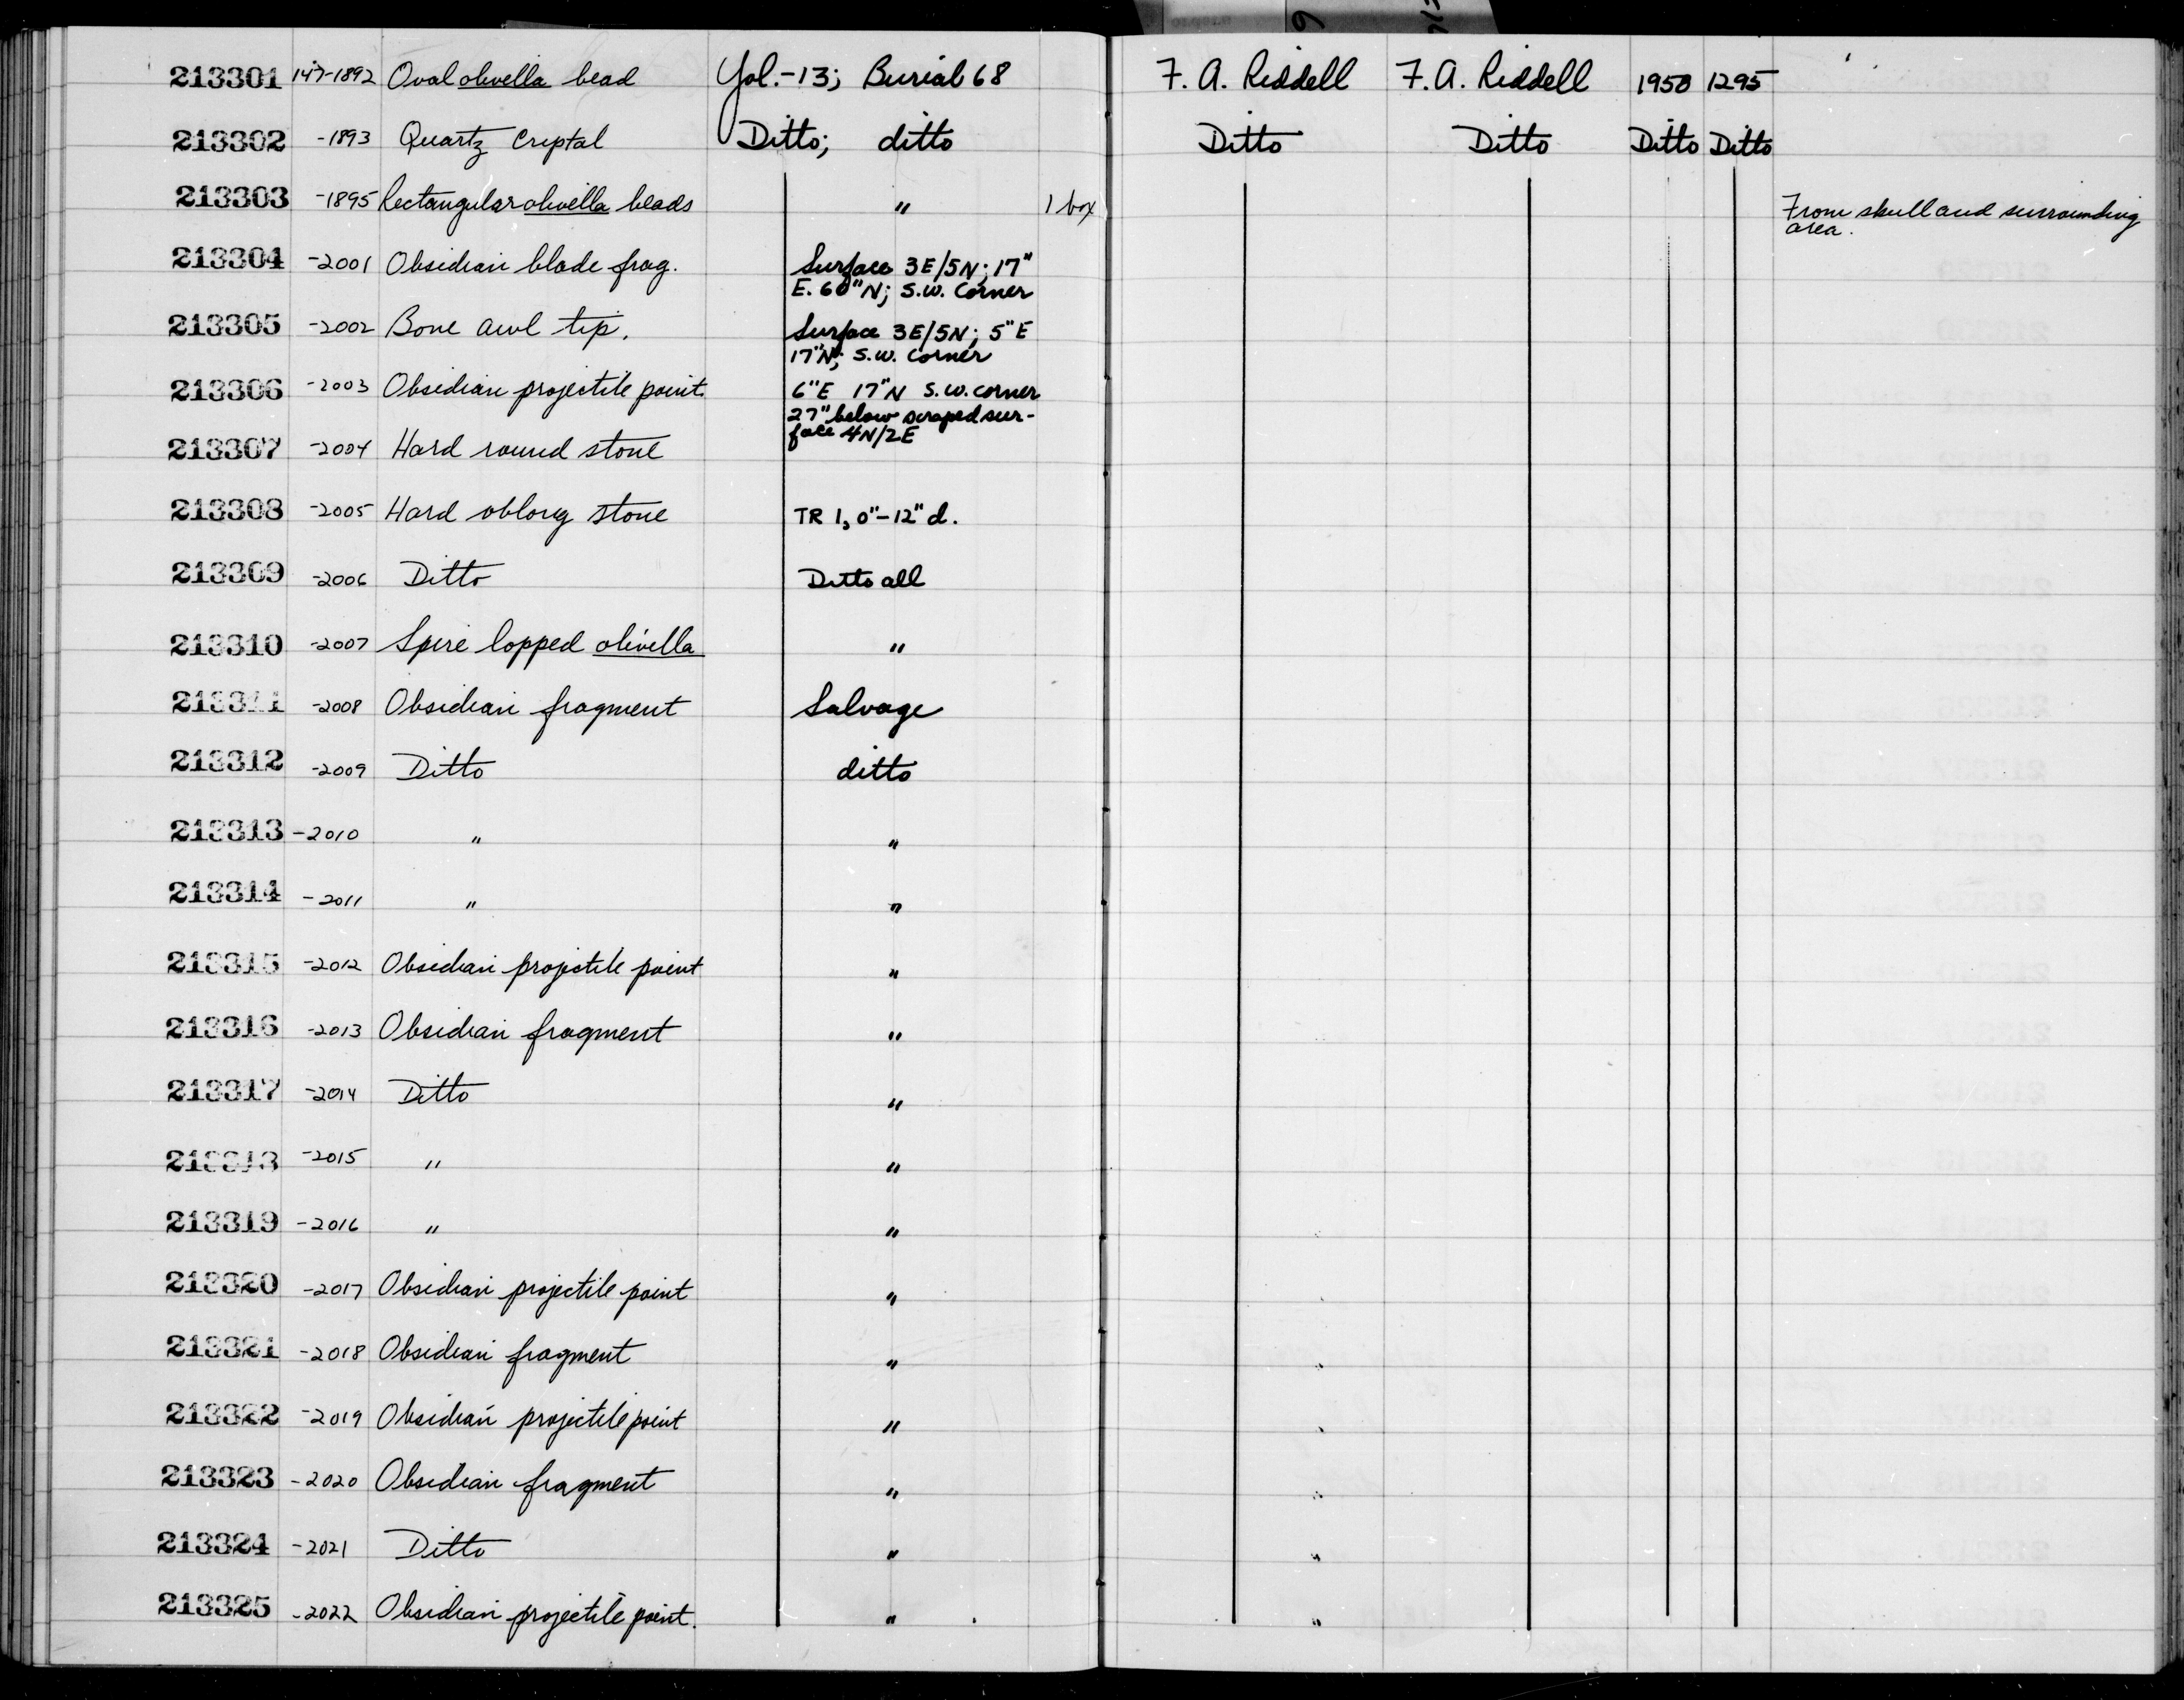 213301 147-1892 Oval olivella bead Yol.-13; Burial 68 F. A. Riddell F. A. Riddell 1950 1295
213302 -1893 Quartz Crystal Ditto; ditto Ditto Ditto Ditto Ditto
213303 -1895 Rectangular olivella beads " 1 box From skull and surrounding
area.
213304 -2001 Obsidian blade frag. Surface 3E/5N; 17"
E. 60"N; S.W. Corner
213305 -2002 Bone awl tip. Surface 3E/5N; 5"E
17"N; S.W. Corner
213306 -2003 Obsidian projectile point. 6"E 17"N S.W. corner
27" below scraped sur-
face 4N/2E
213307 -2004 Hard round stone
213308 -2005 Hard oblong stone TR 1, 0"-12" d.
213309 -2006 Ditto Ditto all
213310 -2007 Spire lopped olivella "
213311 -2008 Obsidian fragment Salvage
213312 -2009 Ditto ditto
213313 -2010 " "
213314 -2011 " "
213315 -2012 Obsidian projectile point "
213316 -2013 Obsidian fragment "
213317 -2014 Ditto "
213318 -2015 " "
213319 -2016 " "
213320 -2017 Obsidian projectile point "
213321 -2018 Obsidian fragment "
213322 -2019 Obsidian projectile point "
213323 -2020 Obsidian fragment "
213324 -2021 Ditto "
213325 -2022 Obsidian projectile point. "